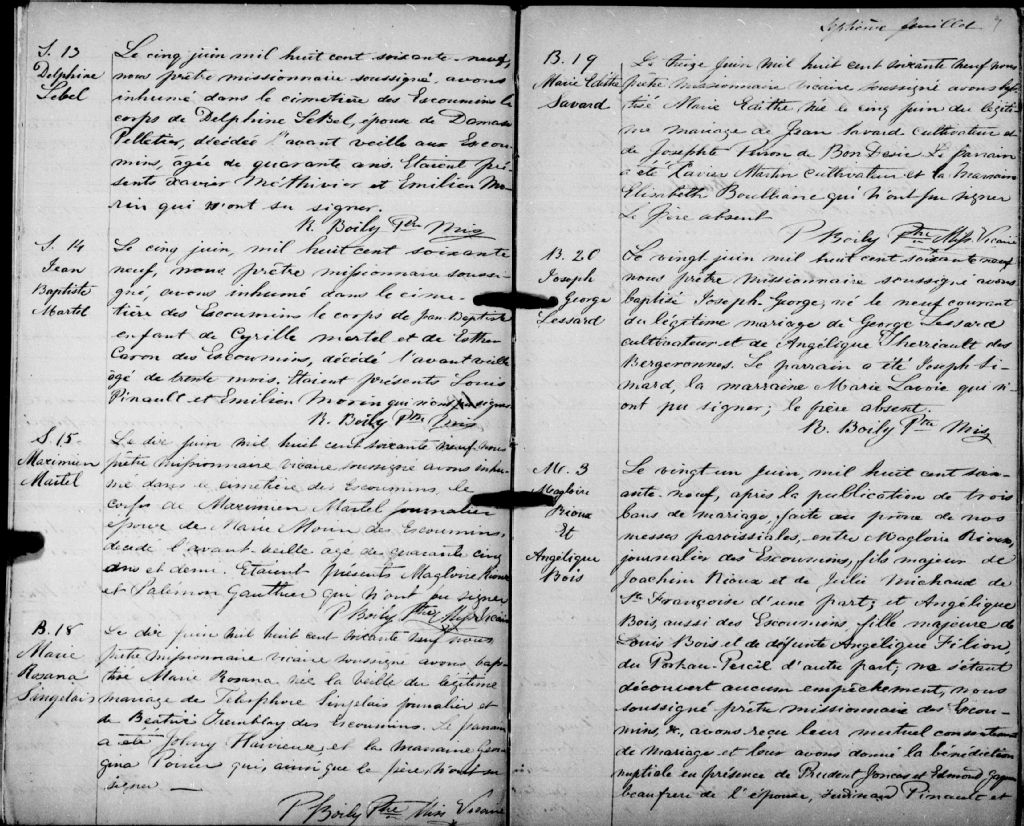 S. 13
Delphine
Lebel
Le cinq juin mil huit cent soixante-neuf,
nous prêtre missionnaire soussigné, avons
inhumé dans le cimetière des Escoumins le
corps de Delphine LeBel, épouse de Damase
Pelletier, décédée l'avant veille aux Escou-
mins, âgée de quarante ans. Etaient pré-
sents Xavier Méthivier et Emilien Mo-
rin qui n'ont su signer.
R. Boily Ptre Mis
S. 14
Jean
Baptiste
Martel
Le cinq juin, mil huit cent soixante
neuf, nous prêtre missionnaire soussi-
gné, avons inhumé dans le cime-
tière des Escoumins le corps de Jean Baptiste
enfant de Cyrille Martel et de Esther
Caron des Escoumins, décédé l'avant veille
âgé de trente mois. Etaient présents Louis
Pinault et Emilien Morin qui n'ont pu signer
R. Boily Ptre Mis
S. 15
Maximien
Martel
Le dix juin mil huit cent soixante neuf nous
prêtre missionnaire vicaire soussigné avons inhu-
mé dans le cimetière des Escoumins, le
corps de Maximien Martel journalier
époux de Marie Morin des Escoumins,
décédé l'avant-veille âgé de quarante cinq
ans et demi. Etaient présents Magloire Rioux
et Palémon Gauthier qui n'ont pu signer
P Boily Ptre Miss Vicaire
B. 18
Marie
Rosana
Singelais
Le dix juin mil huit cent soixante neuf nous
prêtre missionnaire vicaire soussigné avons bap-
tisé Marie Rosana née la veille du légitime
mariage de Télesphore Singelais journalier et
de Béatrix Tremblay des Escoumins. Le parrain
a été Johny et la marraine Geor-
gina Poirier qui, ainsi que le père, n'ont su
signer —
P Boily Ptre Miss Vicaire
Septième feuillet 7
B. 19
Marie Edithe
Savard
Le treize Juin mil huit cent soixante neuf nous
prêtre missionnaire vicaire soussigné avons bap-
tisé Marie Edithe, née le cinq juin du légiti-
me mariage de Jean Savard cultivateur et
de Josephte Piron de Bon Désir. Le parrain
a été Xavier Martin cultivateur et la marraine
Elisabeth Boulliane qui n'ont pu signer
Le père absent
P Boily Ptre Miss Vicaire
B. 20
Joseph
George
Lessard
Le vingt juin mil huit cent soixante neuf
nous prêtre missionnaire soussigné avons
baptisé Joseph-George, né le neuf courant
du légitime mariage de George Lessard
cultivateur et de Angélique Therriault des
Bergeronnes. Le parrain a été Joseph Si-
mard, la marraine Marie Lavoie qui n'-
ont pu signer; le père absent.
R. Boily Ptre Mis
M. 3
Magloire
Rioux
Et
Angélique
Bois
Le vingt un Juin, mil huit cent soix-
ante-neuf, après la publication de trois
bans de mariage, faite au prône de nos
messes paroissiales, entre Magloire Rioux,
journalier des Escoumins, fils majeur de
Joachim Rioux et de Julie Michaud de
Ste Françoise d'une part; et Angélique
Bois, aussi des Escoumins, fille majeure de
Louis Bois et de défunte Angélique Filion,
du Port-au-Persil d'autre part; ne s'étant
découvert aucum empêchement, nous
soussigné prêtre missionnaire des Escou-
mins, &c, avons reçu leur mutuel consentement
de mariage et leur avons donné la bénédiction
nuptiale en présence de Prudent Joncas et Edmond
beaufrère de l'épouse, Ferdinand Pinault et